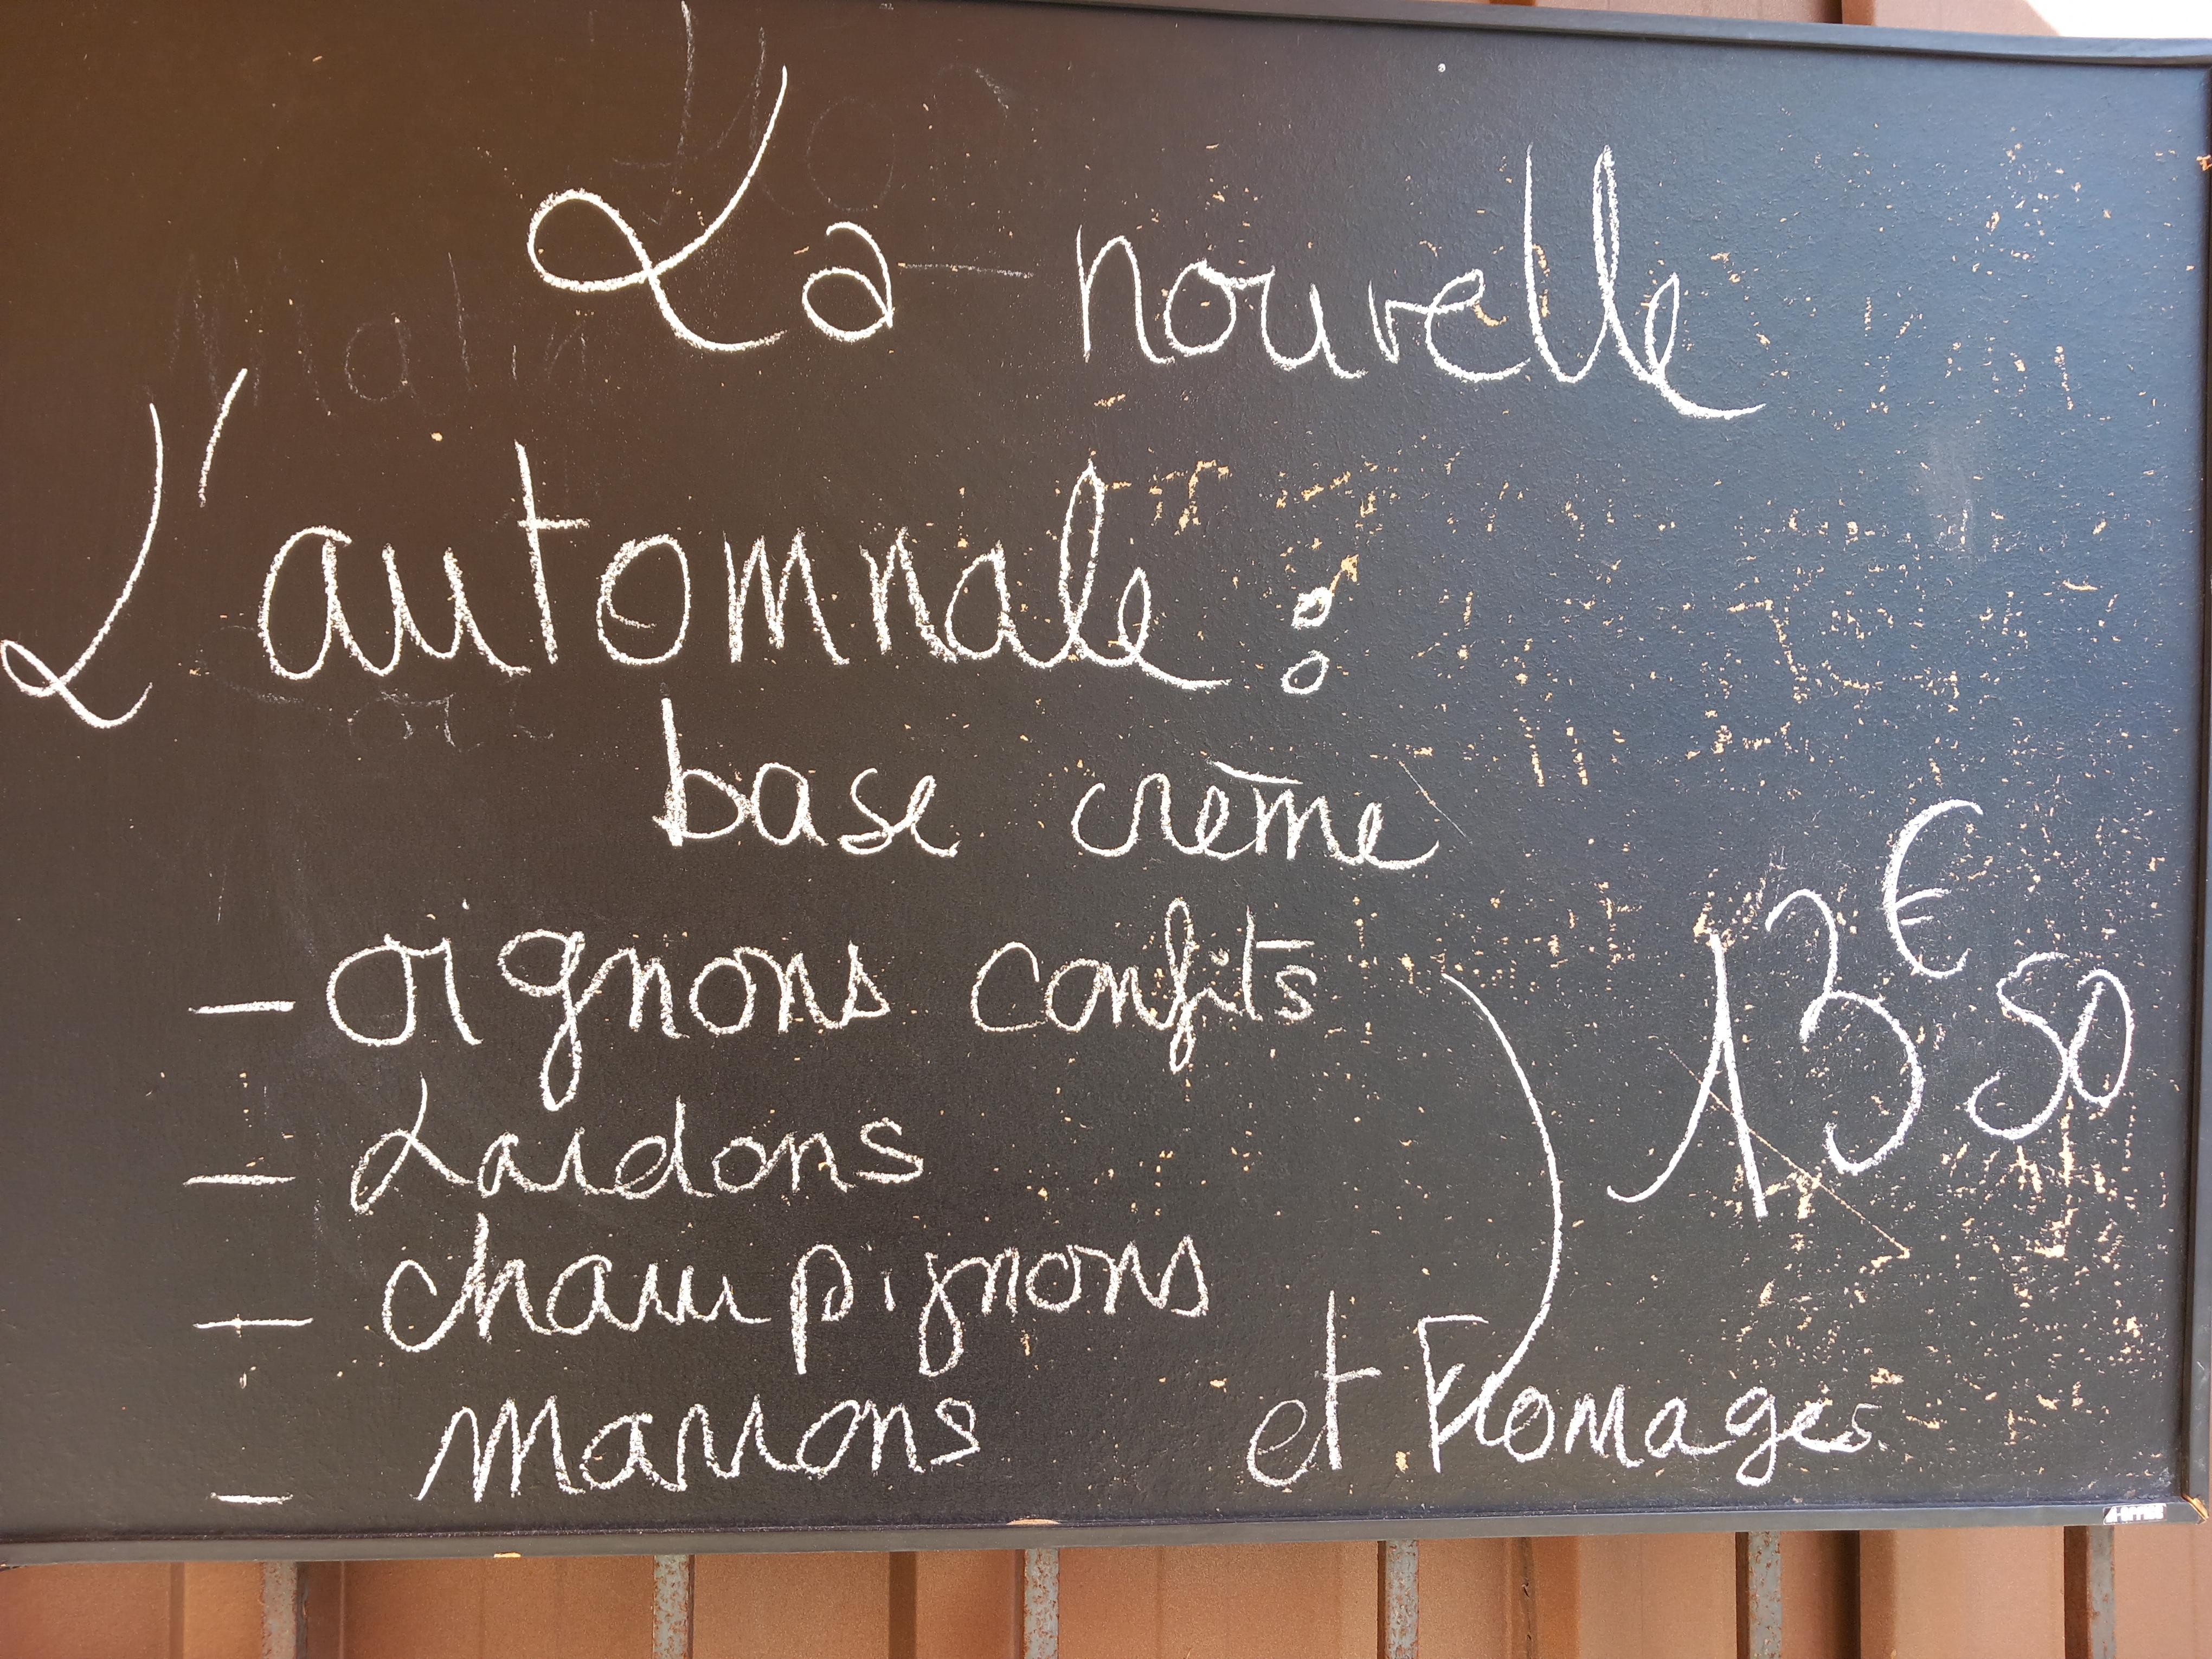 La nouvelle
L'automnale :
base crème
- oignons confits
- Lardons
- champignons
- marrons
et Fromages
13€50